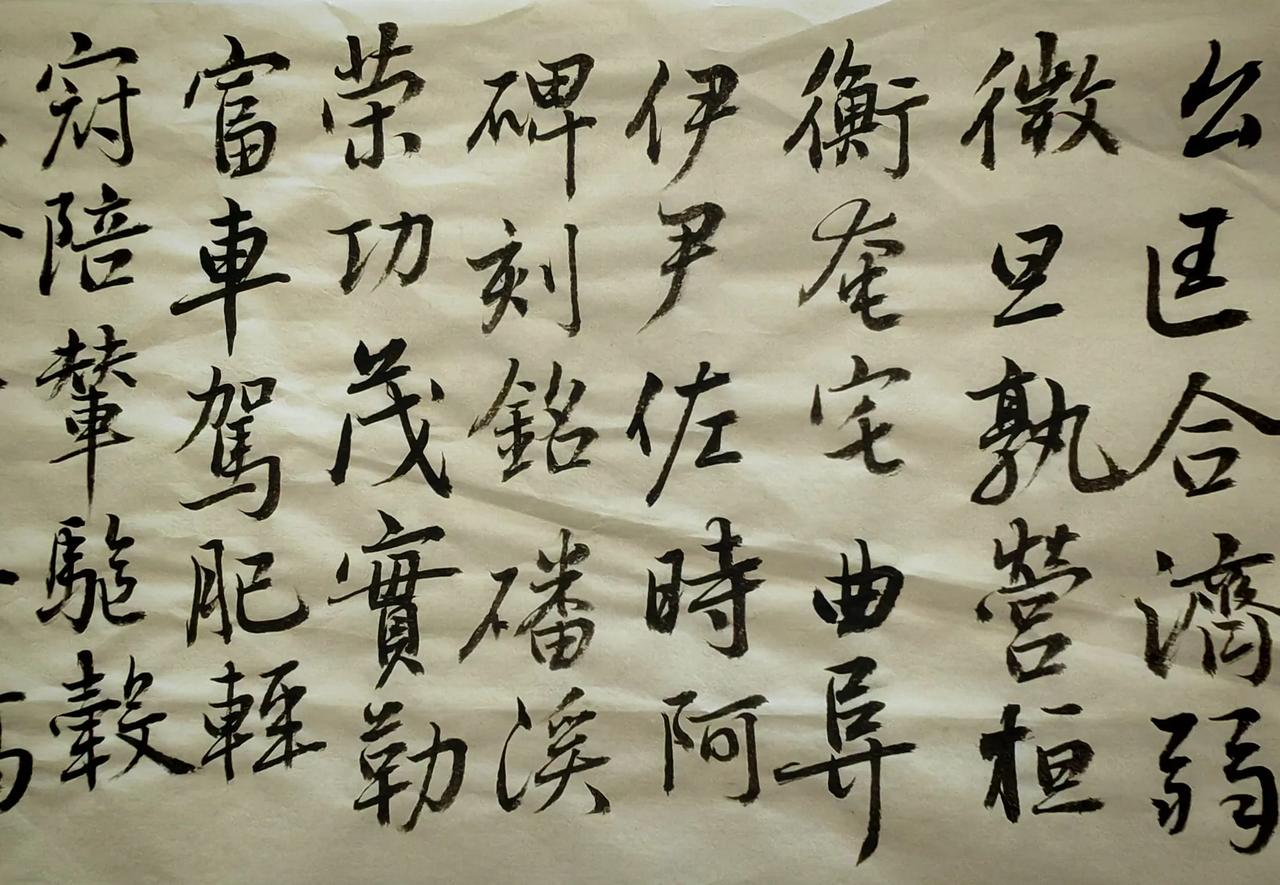 公匡合濟弱
微旦孰營桓
衡奄宅曲阜
伊尹佐時阿
碑刻銘磻溪
策功茂實勒
富車駕肥輕
冠陪輦驅轂